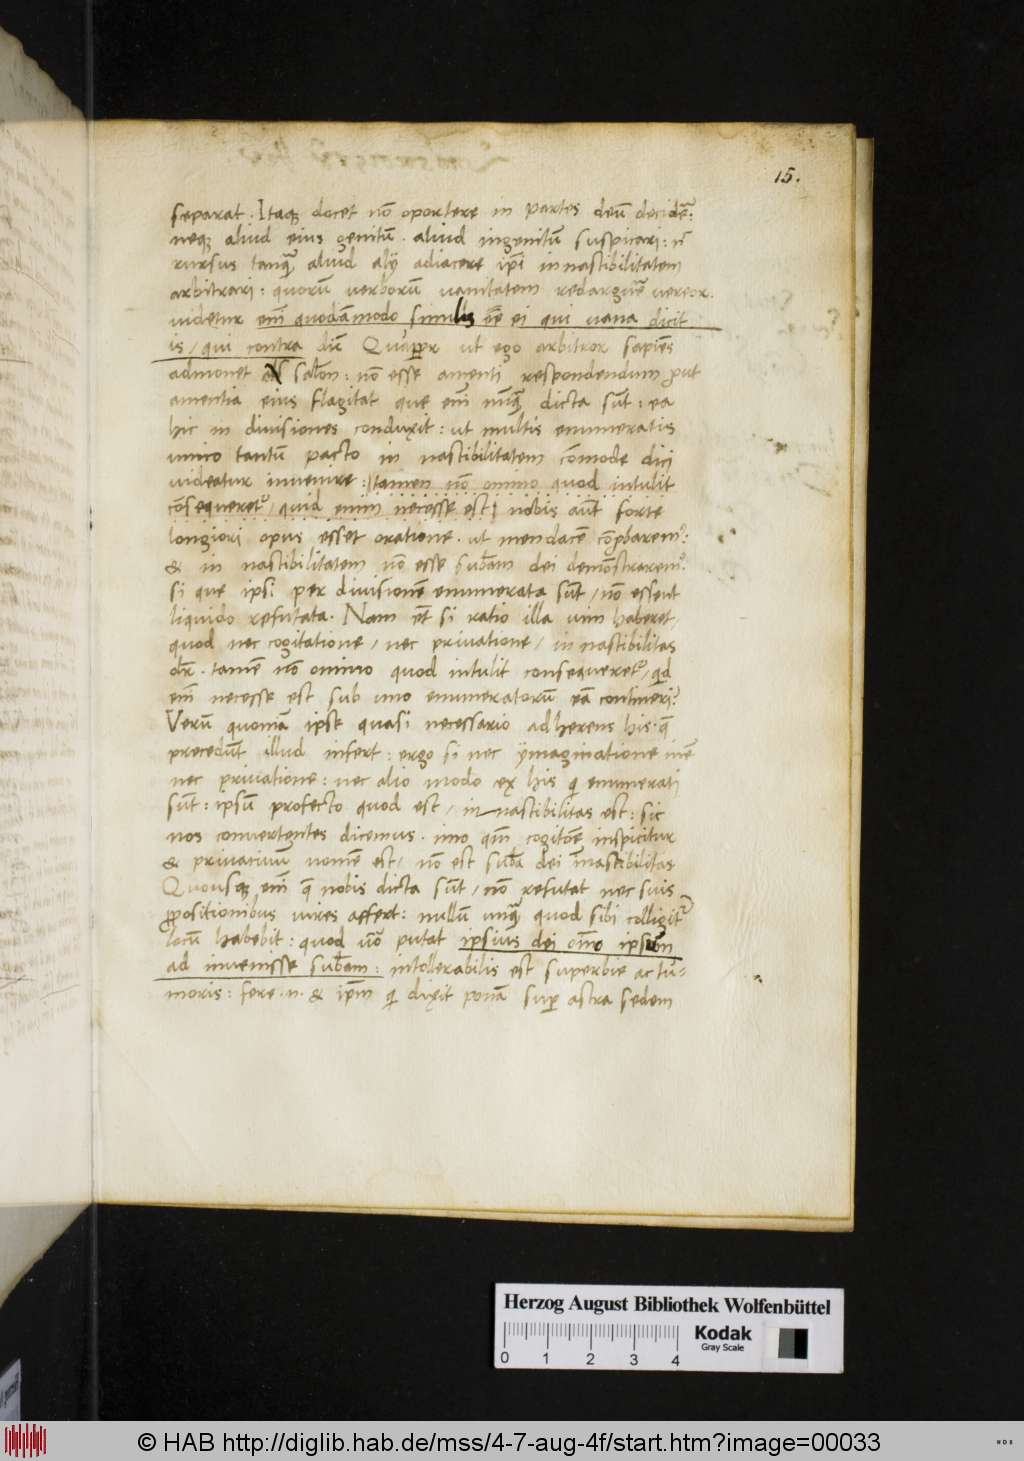 15.
separat. Itaqꝫ docet nō oportere in partes deū decidē:
neqꝫ aliud eius genitū. aliud ingenitū suspicari: nͨ
rursus tanqͣꝫ aliud alij adiacere ip̄i innascibilitatem
arbitrari: quorū verborū vanitatem redarguē vereor.
videtur em̄ quodāmodo similis eē ei qui vana dicit
is, qui contra diū Quaꝓpr ut ego arbitror sapiēs
admonet salōn: nō esse amenti respondendum prout
amentia eius flagitat que em̄ nunqͣꝫ dicta sūt: ea
hic in divisiones conduxit: ut multis enumeratis
unico tantū pacto in nascibilitatem cōmode dici
videatur invenire: tamen nō omnino quod intulit
cōsequeret᷑, quid enim necesse est nobis aūt forte
longiori opus esset oratione. ut mendacē cōprobarem᷒:
& in nascibilitatem nō esse subām dei demōstrarem᷒:
si que ipsi per divisionē enumerata sūt, nō essent
liquido refutata. Nam et si ratio illa vim haberet,
quod nec cogitatione, nec privatione, innascibilitas
dr̄. tamē nō omnino quod intulit consequeret᷑, qd
em̄ necesse est sub uno enumeratorū eā contineri?
Verū quoniā ipse quasi necessario adherens his q̄
precedūt illud infert: ergo si nec ymaginatione inē
nec privatione: nec alio modo ex his qi enumerati
sūt: ipsū profecto quod est, innascibilitas est: sic
nos convertentes dicemus. imo qm̄ cogitōe inspicitur
& privativū nomē est, nō est subā dei innascibilitas
Quousqꝫ em̄ q̄ nobis dicta sūt, nō refutat nec suis
ꝓpositionibus vires affert: nullū unqͣꝫ quod sibi colligit᷑
locū habebit: quod vō putat ipsius dei om̄o ipsum
ad invenisse subām: intollerabilis est superbie ac tu-
moris: fere .n. & ip̄m qi dixit ponā super astra sedem
Herzog August Bibliothek Wolfenbüttel
0 1 2 3 4
Kodak
Gray Scale
© HAB http://diglib.hab.de/mss/4-7-aug-4f/start.htm?image=00033